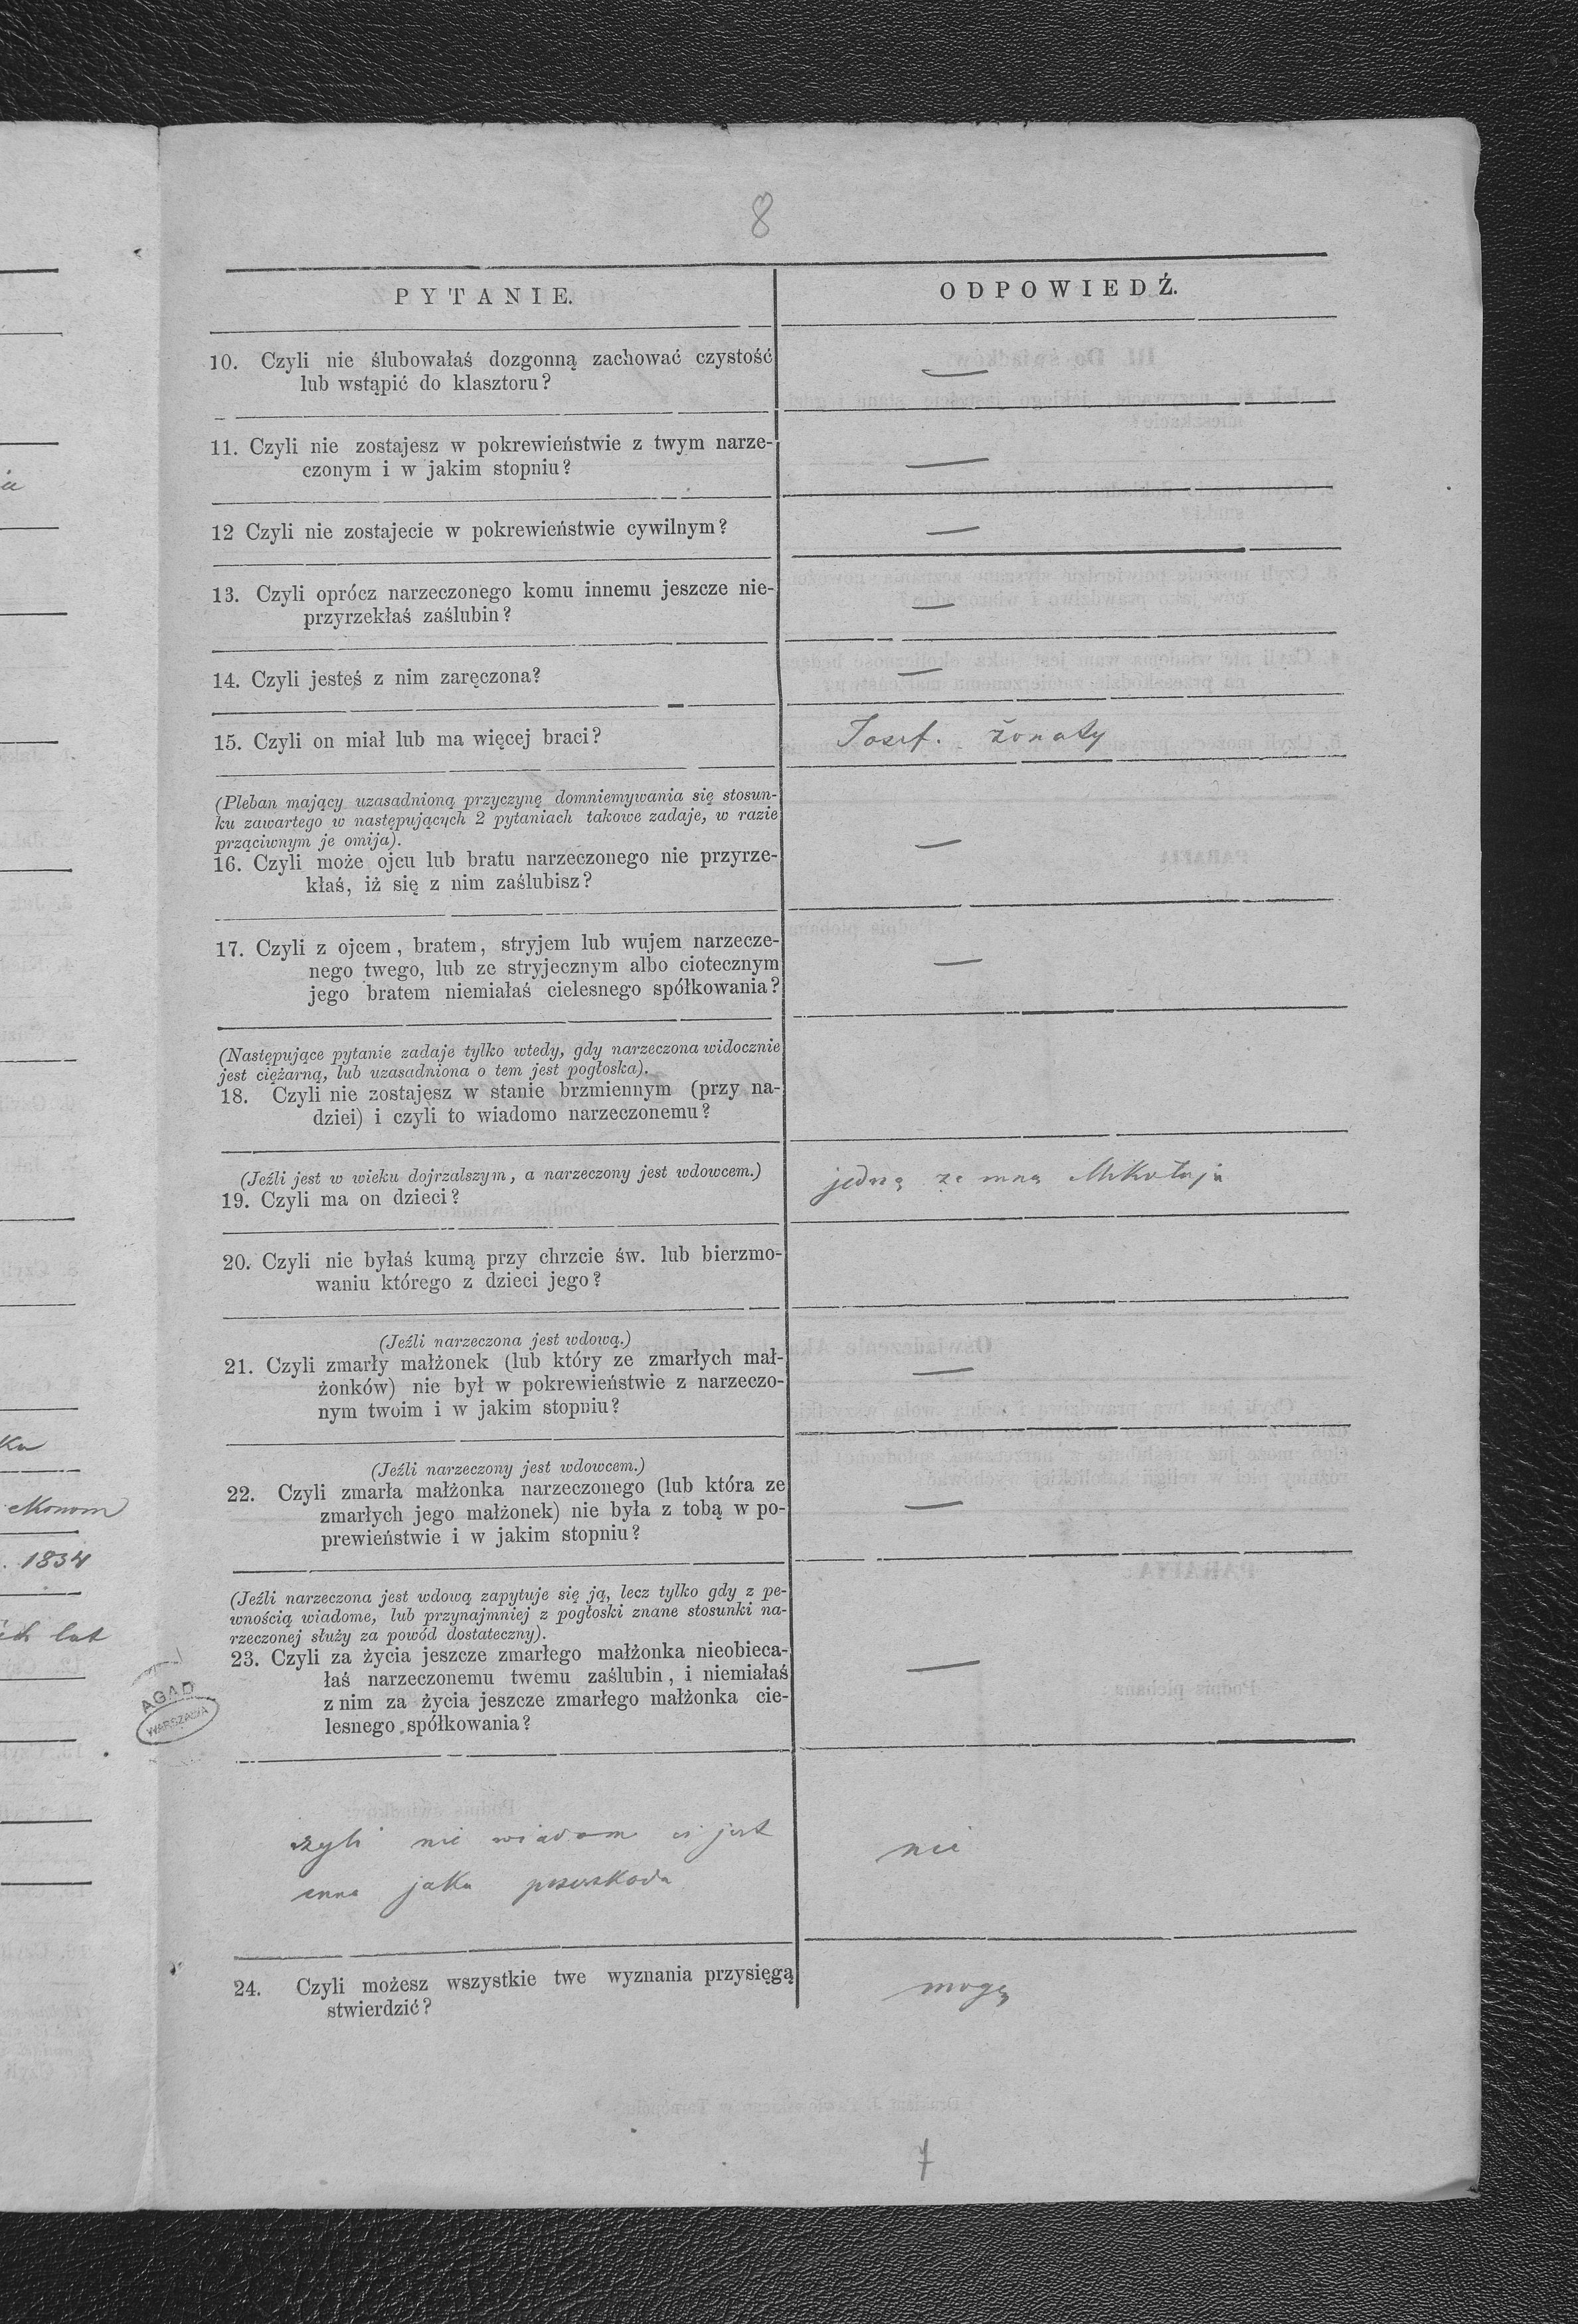 8
PYTANIE.
ODPOWIEDŹ.
10. Czyli nie ślubowałaś dozgonną zachować czystość
lub wstąpić do klasztoru?
—
11. Czyli nie zostajesz w pokrewieństwie z twym narze-
czonym i w jakim stopniu?
—
12 Czyli nie zostajecie w pokrewieństwie cywilnym?
—
13. Czyli oprócz narzeczonego komu innemu jeszcze nie-
przyrzekłaś zaślubin?
—
14. Czyli jesteś z nim zaręczona?
—
15. Czyli on miał lub ma więcej braci?
Josef. żonaty
(Pleban mający uzasadnioną przyczynę domniemywania się stosun-
ku zawartego w następujących 2 pytaniach takowe zadaje, w razie
prząciwnym je omija).
16. Czyli może ojcu lub bratu narzeczonego nie przyrze-
kłaś, iż się z nim zaślubisz?
—
17. Czyli z ojcem, bratem, stryjem lub wujem narzecze-
nego twego, lub ze stryjecznym albo ciotecznym
jego bratem niemiałaś cielesnego spółkowania?
—
(Następujące pytanie zadaje tylko wtedy, gdy narzeczona widocznie
jest ciężarną, lub uzasadniona o tem jest pogłoska).
18. Czyli nie zostajesz w stanie brzmiennym (przy na-
dziei) i czyli to wiadomo narzeczonemu?
(Jeźli jest w wieku dojrzalszym, a narzeczony jest wdowcem.)
19. Czyli ma on dzieci?
jedną ze mną Mikołaja
20. Czyli nie byłaś kumą przy chrzcie św. lub bierzmo-
waniu którego z dzieci jego?
(Jeźli narzeczona jest wdową.)
21. Czyli zmarły małżonek (lub który ze zmarłych mał-
żonków) nie był w pokrewieństwie z narzeczo-
nym twoim i w jakim stopniu?
—
(Jeźli narzeczony jest wdowcem.)
22. Czyli zmarła małżonka narzeczonego (lub która ze
zmarłych jego małżonek) nie była z tobą w po-
prewieństwie i w jakim stopniu?
—
(Jeźli narzeczona jest wdową zapytuje się ją, lecz tylko gdy z pe-
wnością wiadome, lub przynajmniej z pogłoski znane stosunki na-
rzeczonej służy za powód dostateczny).
23. Czyli za życia jeszcze zmarłego małżonka nieobieca-
łaś narzeczonemu twemu zaślubin, i niemiałaś
z nim za życia jeszcze zmarłego małżonka cie-
lesnego spółkowania?
—
czyli nie wiadom ci jest
inna jaka przeszkoda
nie
24. Czyli możesz wszystkie twe wyznania przysięgą
stwierdzić?
mogę
7
1834
lat
AGAD
WARSZAWA